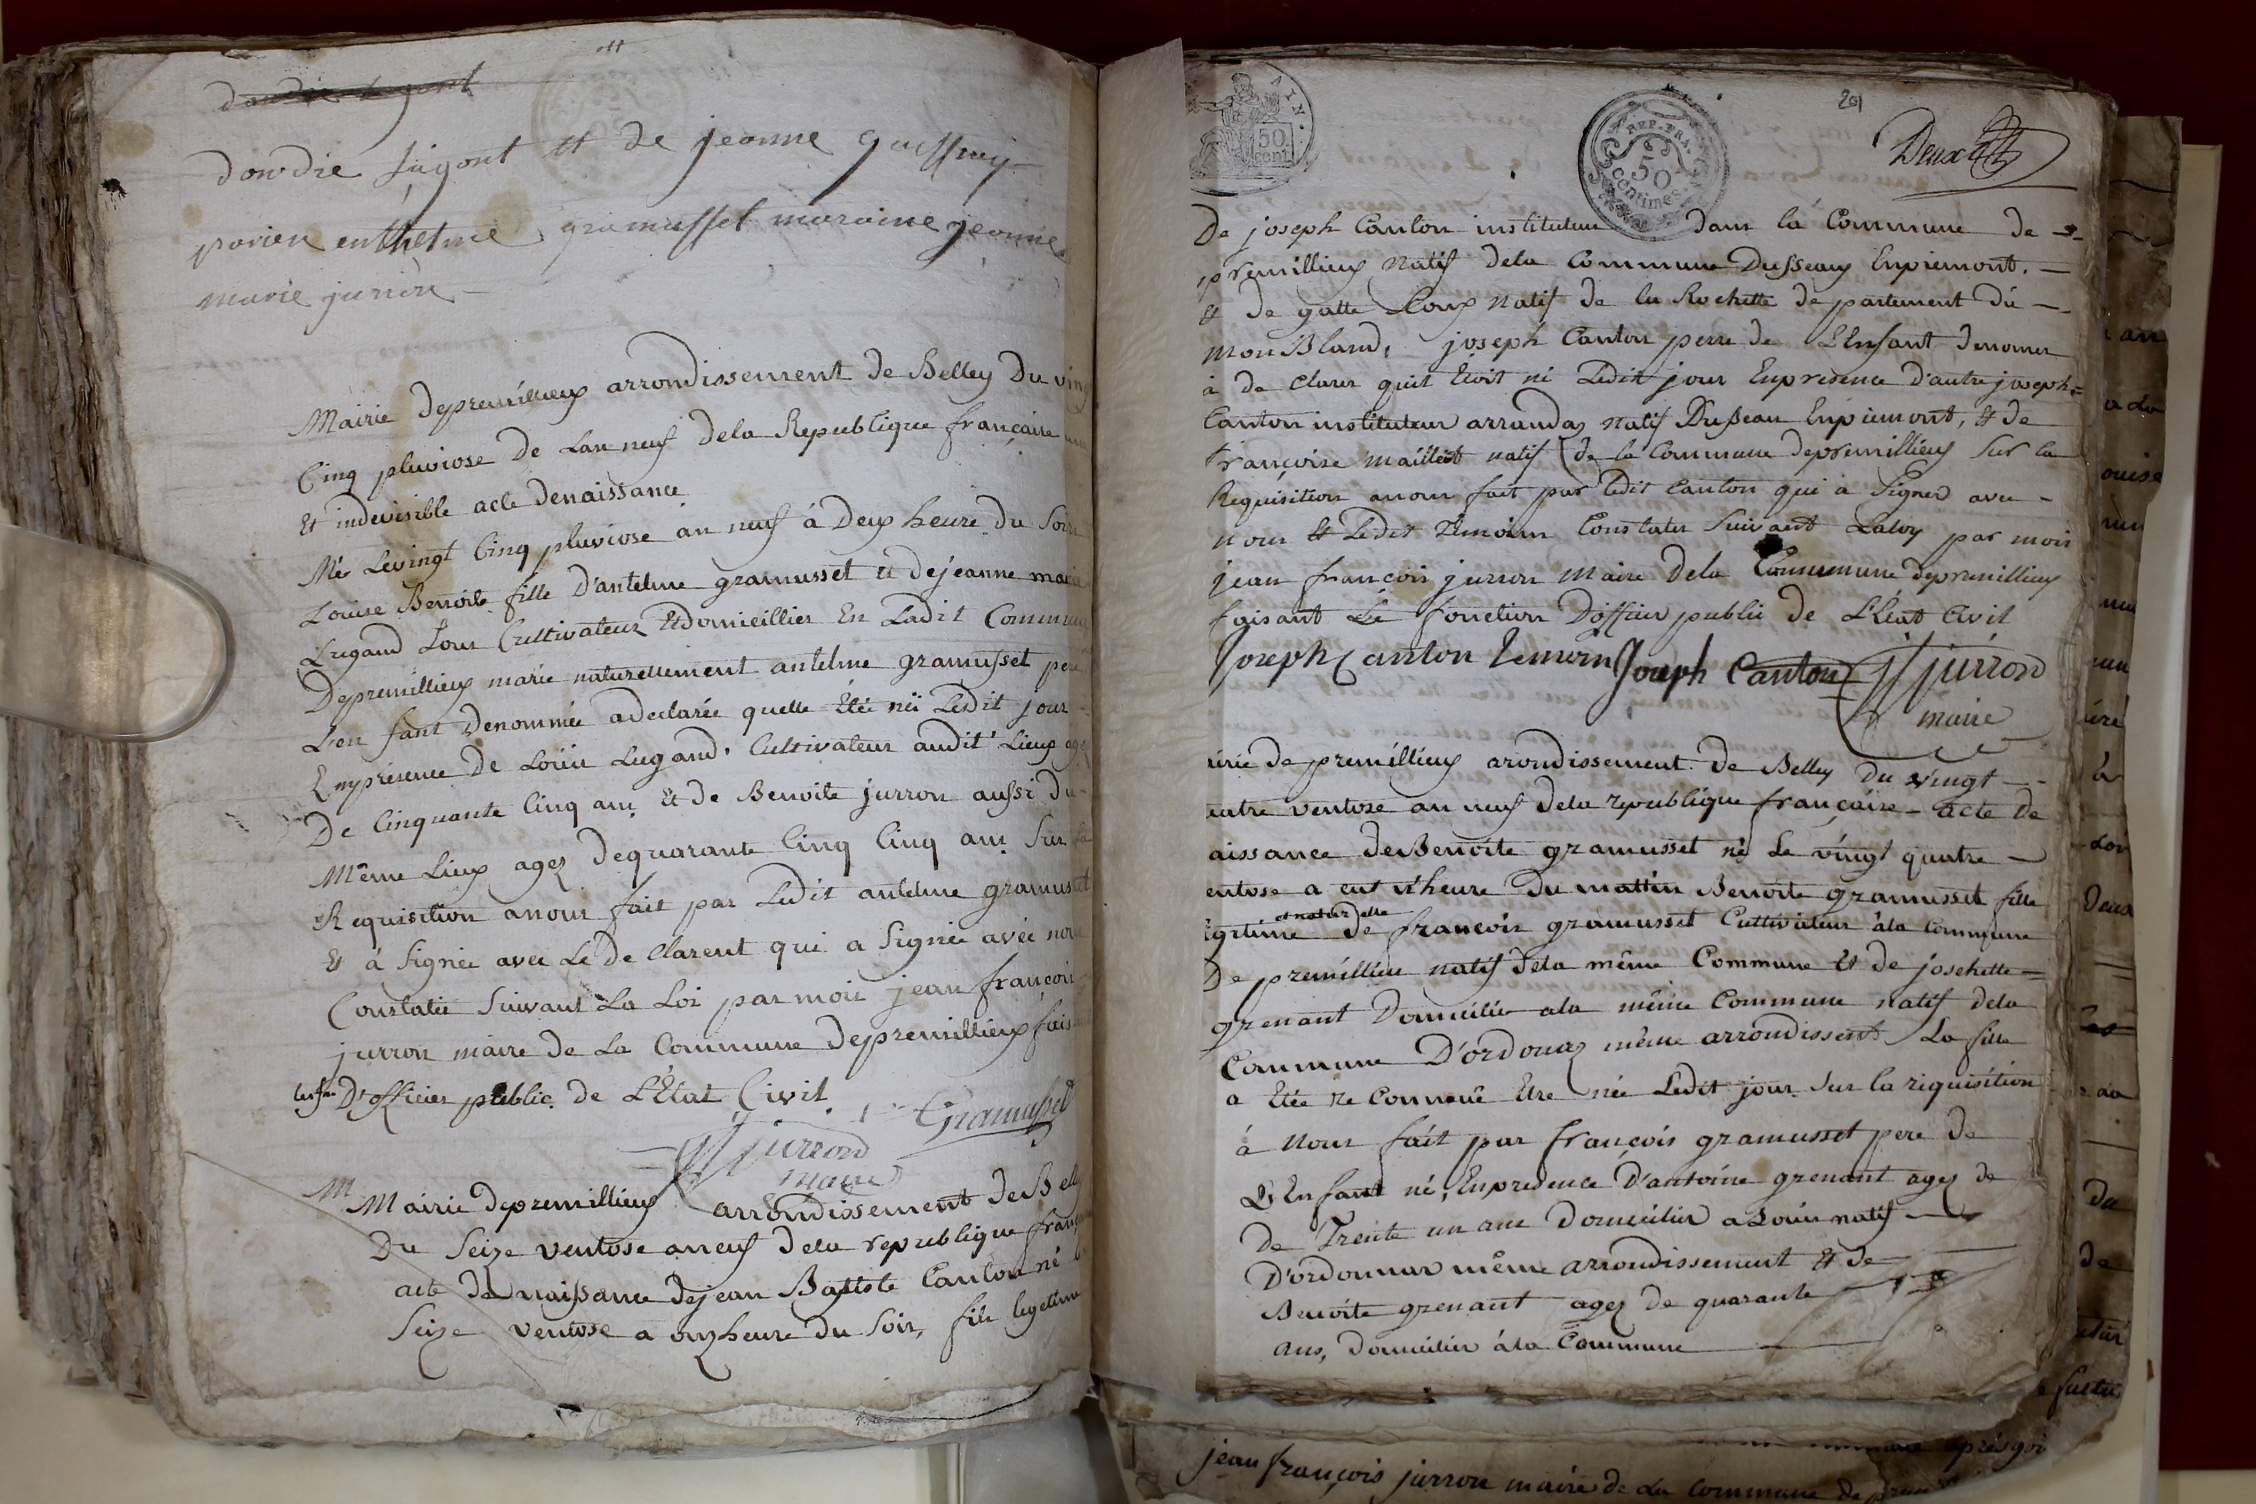 dondie
dondie sigont et de jeanne guissray
parien enthelme gramusset maraine jeanne
marie jurron
Mairie depremillieux arrondissement de Belley Du vingt
Cinq pluviose De Lan neuf dela Republique française une
Et indevisible acte denaissance
Née Levingt Cinq pluviose an neuf à Deux heure Du Soir
Louise Benoite fille D'antelme gramusset et dejeanne marie
Lugand Tous Cultivateur Et domicillier En Ladit Commune
Depremillieux marié naturellement antelme gramusset pere
L'en fant Denommée adeclarée quelle Etée née Ledit jour
Emprésence de Louis Lugand Cultivateur audit Lieux agez
De Cinquante Cinq ans et de Benoite jurron aussi Du
Même Lieux agez Dequarante Cinq Cinq ans Sur La
Requisition anous fait par Ledit antelme gramusset
Et à Signée avec Le De Clarent qui a Signée avée nous
Constatée Suivant La Loi par moi jean françois
jurron maire de La Commune Depremillieux fais
D'officier public de L'Etat Civil
JF jurron Gramusset
maire
M Mairie depremillieux arrondissement de Belley
Du Seize ventose anneuf dela republique franç
acte de naissance dejean Batiste Canton né
Seize ventose a onzheure du Soir, fils legetime
AIN.
50
cent
REP. FRA.
50
centimes
201
Deux
De joseph Canton instituteur dans la Commune de
premillieux natif dela Commune Dusseaux Enpiemont.
et de gatte Loup natif de la Rochette departement du
mon Bland, joseph Canton perre de L'Enfant denomer
à de clarer quil Etoit né Ledit jour Enpresence d'autre joseph
Canton instituteur arrandas natif Dusseau Enpiemont, et de
françoise maillet natif de la Commune depremillieux Sur la
Requisition anous fait par Ledit Canton qui a Signer avec
nous et Ledit Témoins Constater Suivant Laloy par mois
jean françois jurron Maire Dela Commune depremillieux
faisant Le fonction D'offiier publie de L'Etat Civil
Joseph Canton temoin Joseph Canton JF jurron
maire
irie de premillieux arondissement de Belley Du vingt
uatre ventose an neuf dela republique française acte de
aissance de Benoite gramusset né Le vingt quatre
entose a heure Du mattin Benoite gramusset fille
et naturelle
égitime De françois gramusset Cultivateur àla Commune
De premillieu natif dela même Commune et de josehette
grenant Domicilier ala même Commune natif dela
Commune D'ordonaz même arrondissent La fille
a Etée Re Connouë Etre née Ledit jour Sur la riquisition
à nous fait par françois gramusset pere de
L'Enfant né, Enpresence D'antoine grenant agez de
de Trente un ans Domicilier a natif
D'ordonnas même arrondissement Et de
Benoite grenant agez de quarante
ans, Domicilier àla Commune
jean françois jurron maire de La Commune de